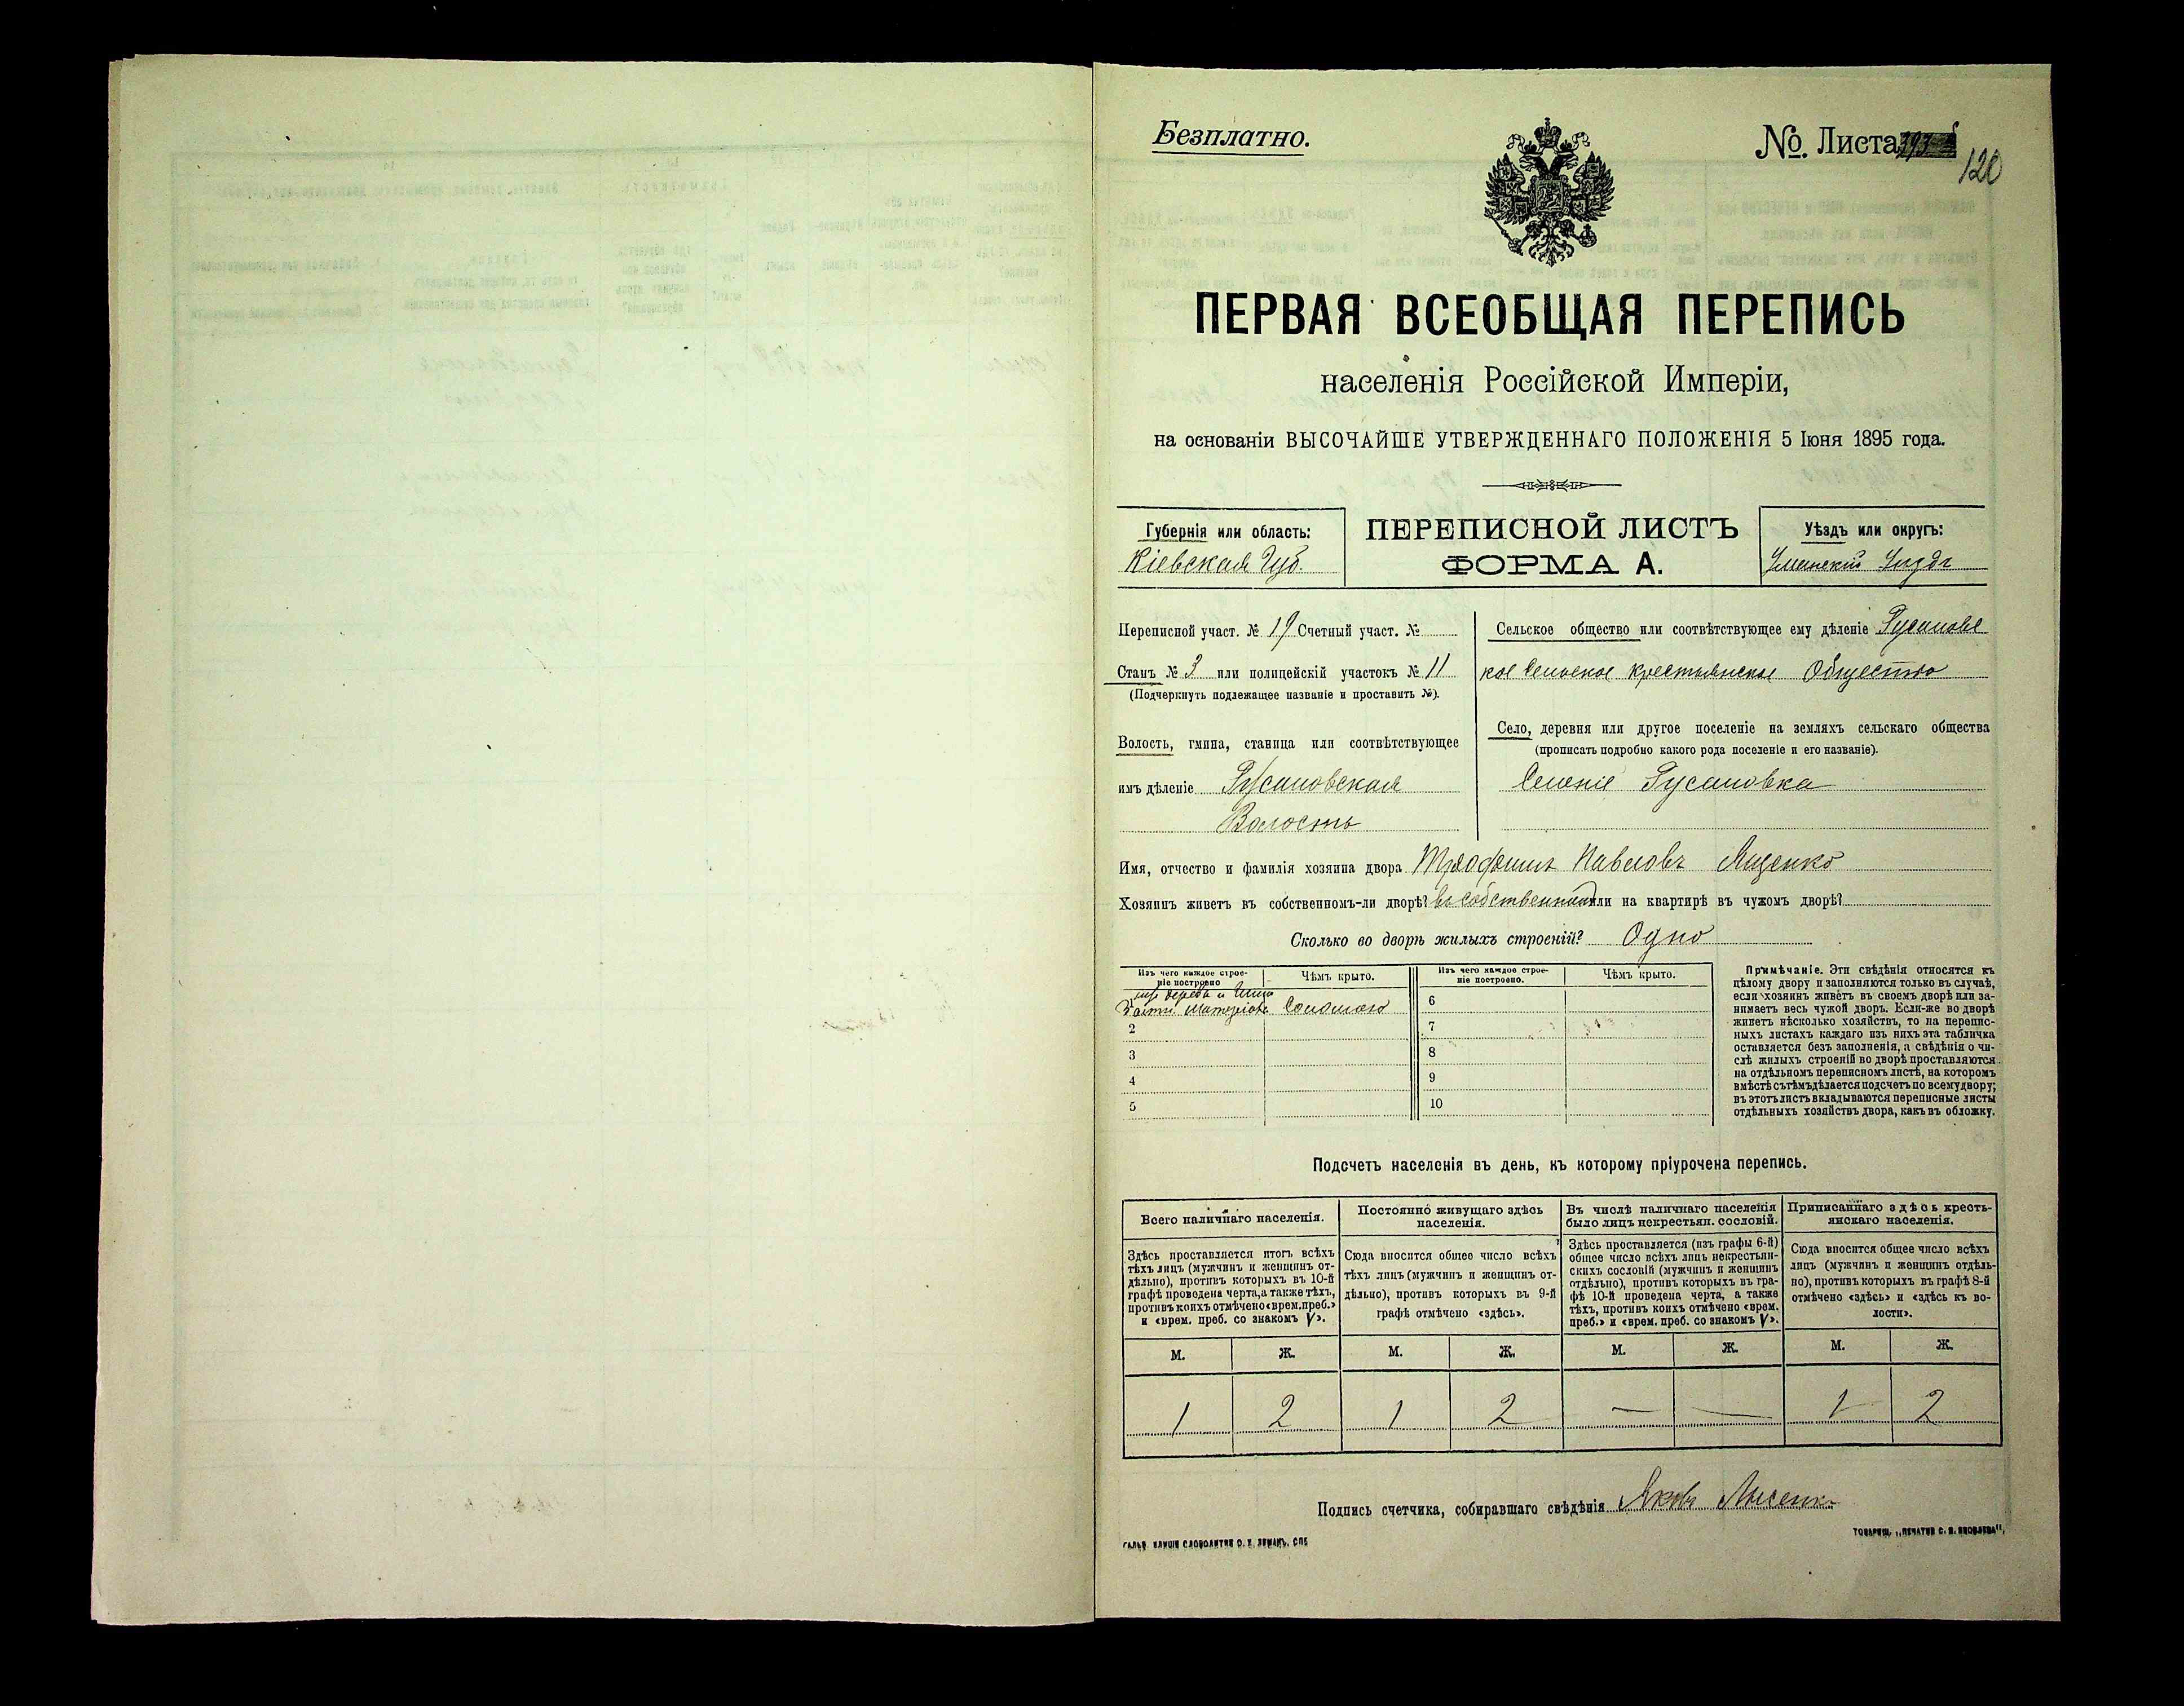 Безплатно.
№. Листа 393
120
ПЕРВАЯ ВСЕОБЩАЯ ПЕРЕПИСЬ
населенія Россійской Имперіи,
на основаніи ВЫСОЧАЙШЕ УТВЕРЖДЕННАГО ПОЛОЖЕНІЯ 5 Іюня 1895 года.
Губернія или область:
Кіевская Губ.
ПЕРЕПИСНОЙ ЛИСТЪ
ФОРМА А.
Уѣздъ или округъ:
Уманский Уѣздъ
Переписной участ. № 19 Счетный участ. №
Станъ № 3 или полицейскій участокъ № 11
(Подчеркнуть подлежащее названіе и проставить №).
Волость, гмина, станица или соотвѣтствующее
имъ дѣленіе Русаловская
Волость
Сельское общество или соотвѣтствующее ему дѣленіе Русаловс
кое Сельское крестьянское Общество
Село, деревня или другое поселеніе на земляхъ сельскаго общества
(прописать подробно какого рода поселеніе и его названіе).
Селеніе Русаловка
Имя, отчество и фамилія хозяина двора Трофимъ Павловъ Ященко
Хозяинъ живетъ въ собственномъ-ли дворѣ? въ собственномъ или на квартирѣ въ чужомъ дворѣ?
Сколько во дворѣ жилыхъ строеній? Одно
Изъ чего каждое строе-
ніе построено
Чѣмъ крыто.
Изъ чего каждое строе-
ніе построено.
Чѣмъ крыто.
изъ дерева и
Соломою
2
3
4
5
6
7
8
9
10
Примѣчаніе. Эти свѣдѣнія относятся къ
цѣлому двору и заполняются только въ случаѣ,
если хозяинъ живетъ въ своемъ дворѣ или за-
нимаетъ весь чужой дворъ. Если-же во дворѣ
живетъ нѣсколько хозяйствъ, то на перепис-
ныхъ листахъ каждаго изъ нихъ эта табличка
оставляется безъ заполненія, а свѣдѣнія о чи-
слѣ жилыхъ строеній во дворѣ проставляются
на отдѣльномъ переписномъ листѣ, на которомъ
вмѣстѣ съ тѣмъ дѣлается подсчетъ по всему двору;
въ этотъ листъ вкладываются переписные листы
отдѣльныхъ хозяйствъ двора, какъ въ обложку.
Подсчетъ населенія въ день, къ которому пріурочена перепись.
Всего наличнаго населенія.
Здѣсь проставляется итогъ всѣхъ
тѣхъ лицъ (мужчинъ и женщинъ от-
дѣльно), противъ которыхъ въ 10-й
графѣ проведена черта, а также тѣхъ,
противъ коихъ отмѣчено «врем. преб.»
и «врем. преб. со знакомъ V».
Постоянно живущаго здѣсь
населенія.
Сюда вносится общее число всѣхъ
тѣхъ лицъ (мужчинъ и женщинъ от-
дѣльно), противъ которыхъ въ 9-й
графѣ отмѣчено «здѣсь».
Въ числѣ наличнаго населенія
было лицъ некрестьян. сословій.
Здѣсь проставляется (изъ графы 6-й)
общее число всѣхъ лицъ некрестьян-
скихъ сословій (мужчинъ и женщинъ
отдѣльно), противъ которыхъ въ гра-
фѣ 10-й проведена черта, а также
тѣхъ, противъ коихъ отмѣчено «врем.
преб.» и «врем. преб. со знакомъ V».
Приписаннаго здѣсь кресть-
янскаго населенія.
Сюда вносится общее число всѣхъ
лицъ (мужчинъ и женщинъ отдѣль-
но), противъ которыхъ въ графѣ 8-й
отмѣчено «здѣсь» и «здѣсь къ во-
лости».
М. Ж. М. Ж. М. Ж. М. Ж.
1 2 1 2 — — 1 2
Подпись счетчика, собиравшаго свѣдѣнія Яковъ Лысенко
ГАЛЬВ. КЛИШЕ СЛОВОЛИТНИ О. И. ЛЕМАНЪ, СПБ
ТОВАРИЩ. „ПЕЧАТНЯ С. П. ЯКОВЛЕВА",